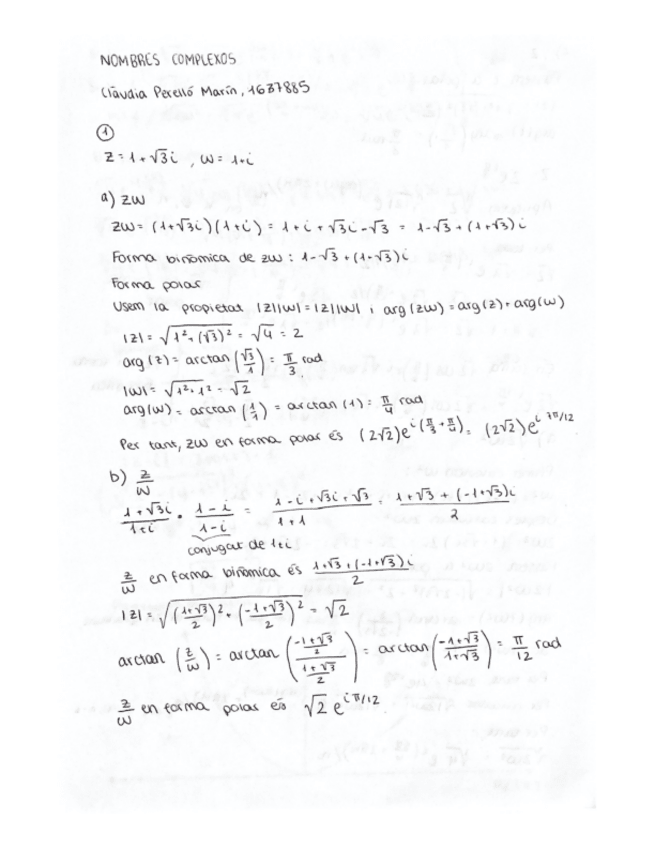 NOMBRES COMPLEXOS
Clàudia Perelló Marín, 1637885
①
z = 1+√3i , w = 1+i
a) zw
zw = (1+√3i)(1+i) = 1+i+√3i-√3 = 1-√3+(1+√3)i
Forma binòmica de zw : 1-√3+(1-√3)i
Forma polar
Usem la propietat |z||w| = |z||w| i arg(zw) = arg(z)+arg(w)
|z| = √(1²+(√3)²) = √4 = 2
arg(z) = arctan(√3/1) = π/3 rad
|w| = √(1²+1²) = √2
arg(w) = arctan(1/1) = arctan(1) = π/4 rad
Per tant, zw en forma polar és (2√2)e^(i(π/3+π/4)) = (2√2)e^(i7π/12)
b) z/w
(1+√3i)/(1+i) · (1-i)/(1-i) = (1-i+√3i+√3)/(1+1) = (1+√3+(-1+√3)i)/2
conjugat de 1+i
z/w en forma binòmica és (1+√3+(-1+√3)i)/2
|z| = √(((1+√3)/2)²+((-1+√3)/2)²) = √2
arctan(z/w) = arctan(((-1+√3)/2)/((1+√3)/2)) = arctan((-1+√3)/(1+√3)) = π/12 rad
z/w en forma polar és √2 e^(iπ/12)